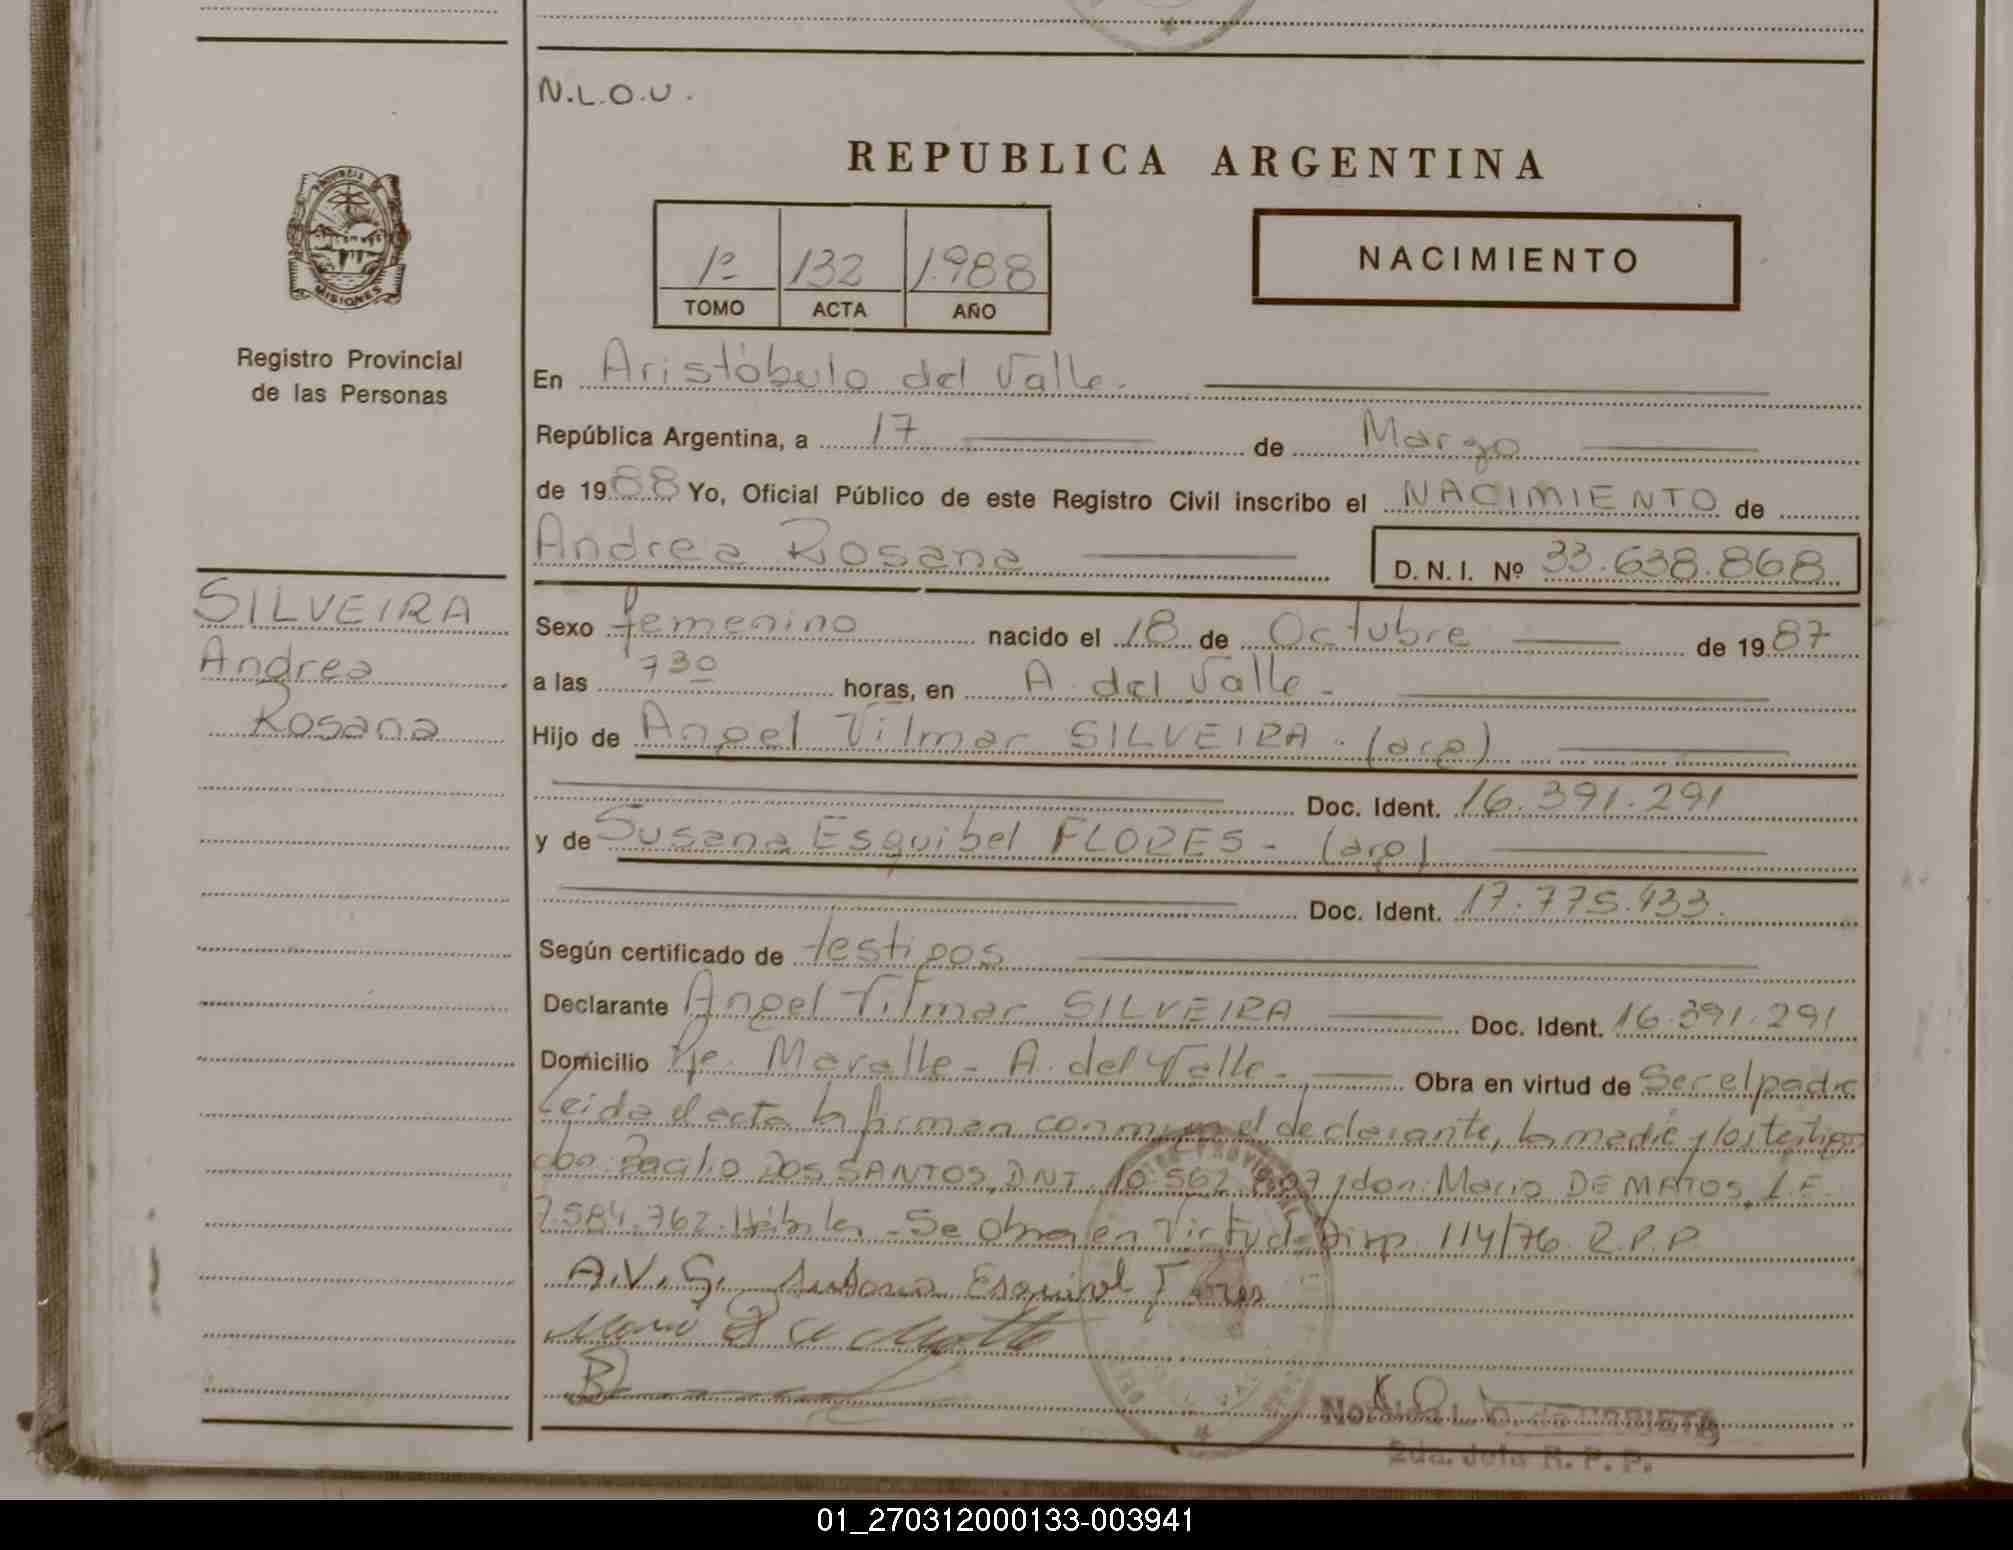 N.L.O.U.
REPUBLICA ARGENTINA
1º 132 1.988
TOMO ACTA AÑO
NACIMIENTO
PROVINCIA DE
MISIONES
Registro Provincial
de las Personas
SILVEIRA
Andrea
Rosana
En Aristóbulo del Valle.
República Argentina, a 17 de Marzo
de 1988 Yo, Oficial Público de este Registro Civil inscribo el NACIMIENTO de
Andrea Rosana D.N.I. Nº 33.638.868
Sexo femenino nacido el 18 de Octubre de 1987
a las 7 30 horas, en A. del Valle -
Hijo de Angel Vilmar SILVEIRA. (arg)
Doc. Ident. 16.391.291
y de Susana Esquibel FLORES - (arg)
Doc. Ident. 17.775.433.
Según certificado de testigos
Declarante Angel Vilmar SILVEIRA Doc. Ident. 16.391.291
Domicilio Pje. Maralle - A. del Valle - Obra en virtud de Ser el padre
Leida el acta la firman conmigo el declarante, la madre y los testigos
don DOS SANTOS, DNI. 10.562. y don: Mario DE MATOS, L.E.
7.584.762. Hábiles - Se Obra en Virtud Disp. 114/76. R.P.P.
A.V.S. Esquivel Flores
2da. Jefa R. P. P.
01_270312000133-003941